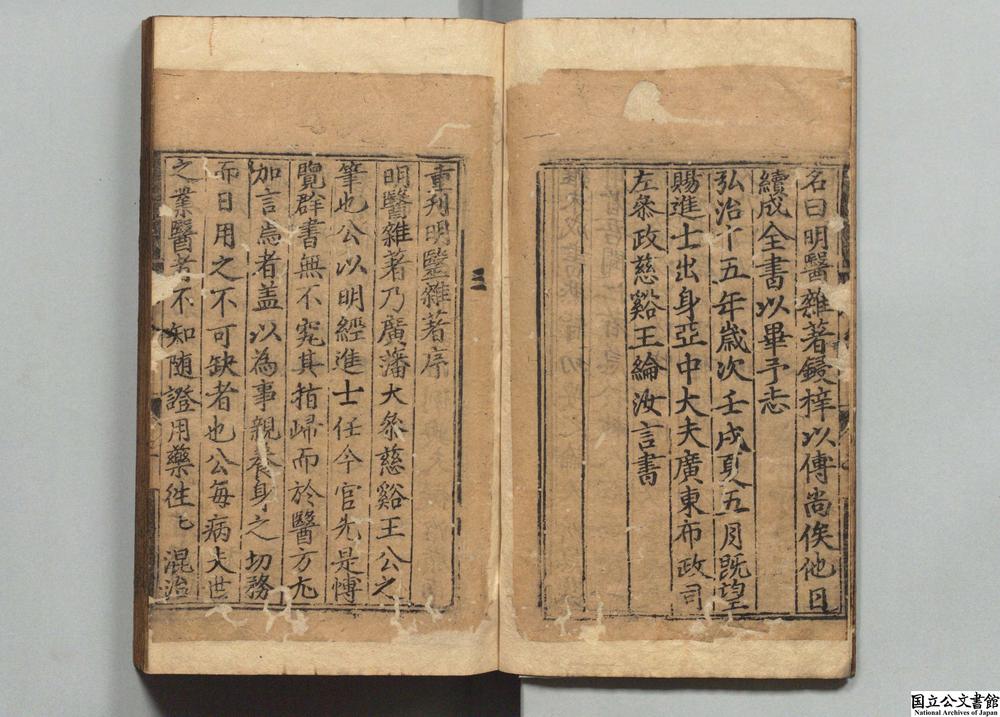 名曰明醫雜著鋟梓以傳尚俟他日
續成全書以畢予志
弘治十五年歲次壬戌夏五月旣望
賜進士出身亞中大夫廣東布政司
左叅政慈谿王綸汝言書
重刋明醫雜著序
明醫雜著乃廣藩大叅慈谿王公之
筆也公以明經進士任今官先是愽
覽群書無不究其指歸而於醫方尢
加言焉者盖以為事親養身之切務
而日用之不可缺者也公每病夫世
之業醫者不知随證用藥徃〻混治
国立公文書館
National Archives of Japan